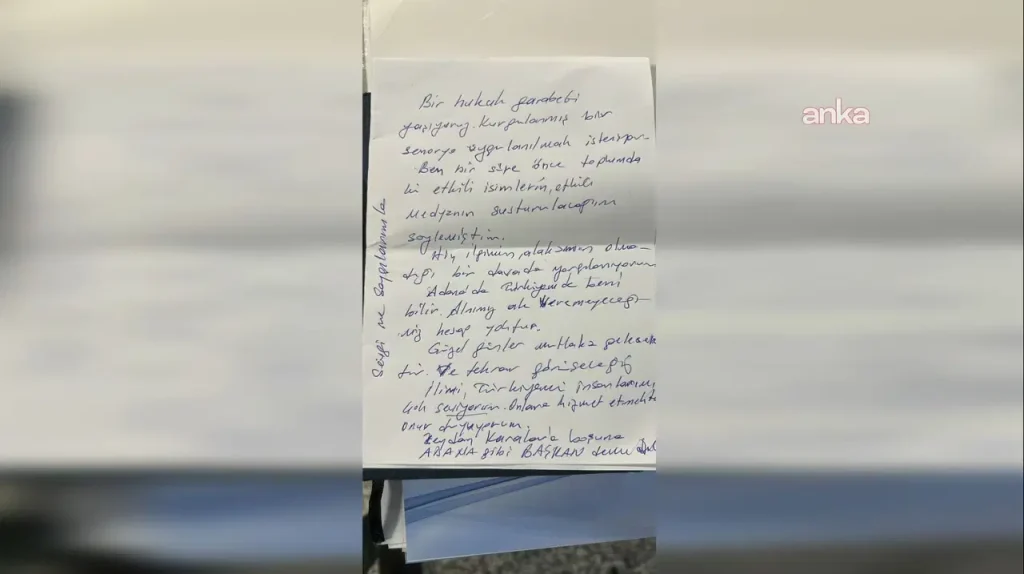 Bir hukuk garabeti
yaşıyoruz. Kurgulanmış bir
senaryo uygulanılmak isteniyor.
Ben bir süre önce toplumda
ki etkili isimlerin, etkili
medyanın susturulacağını
söylemiştim.
Hiç ilgimin, alakamın olma-
dığı bir davada yargılanıyorum
Adana'da Türkiye'de beni
bilir. Alnımız ak veremeyeceği
miz hesap yoktur.
Güzel günler mutlaka gelecek
tir. Ve tekrar görüşeceğiz
İlimi, Türkiyemi insanlarımı,
çok seviyorum. Onlara hizmet etmekten
onur duyuyorum.
Zeydan Karalar'a boşuna
ADANA gibi BAŞKAN
Sevgi ve saygılarımla
anka